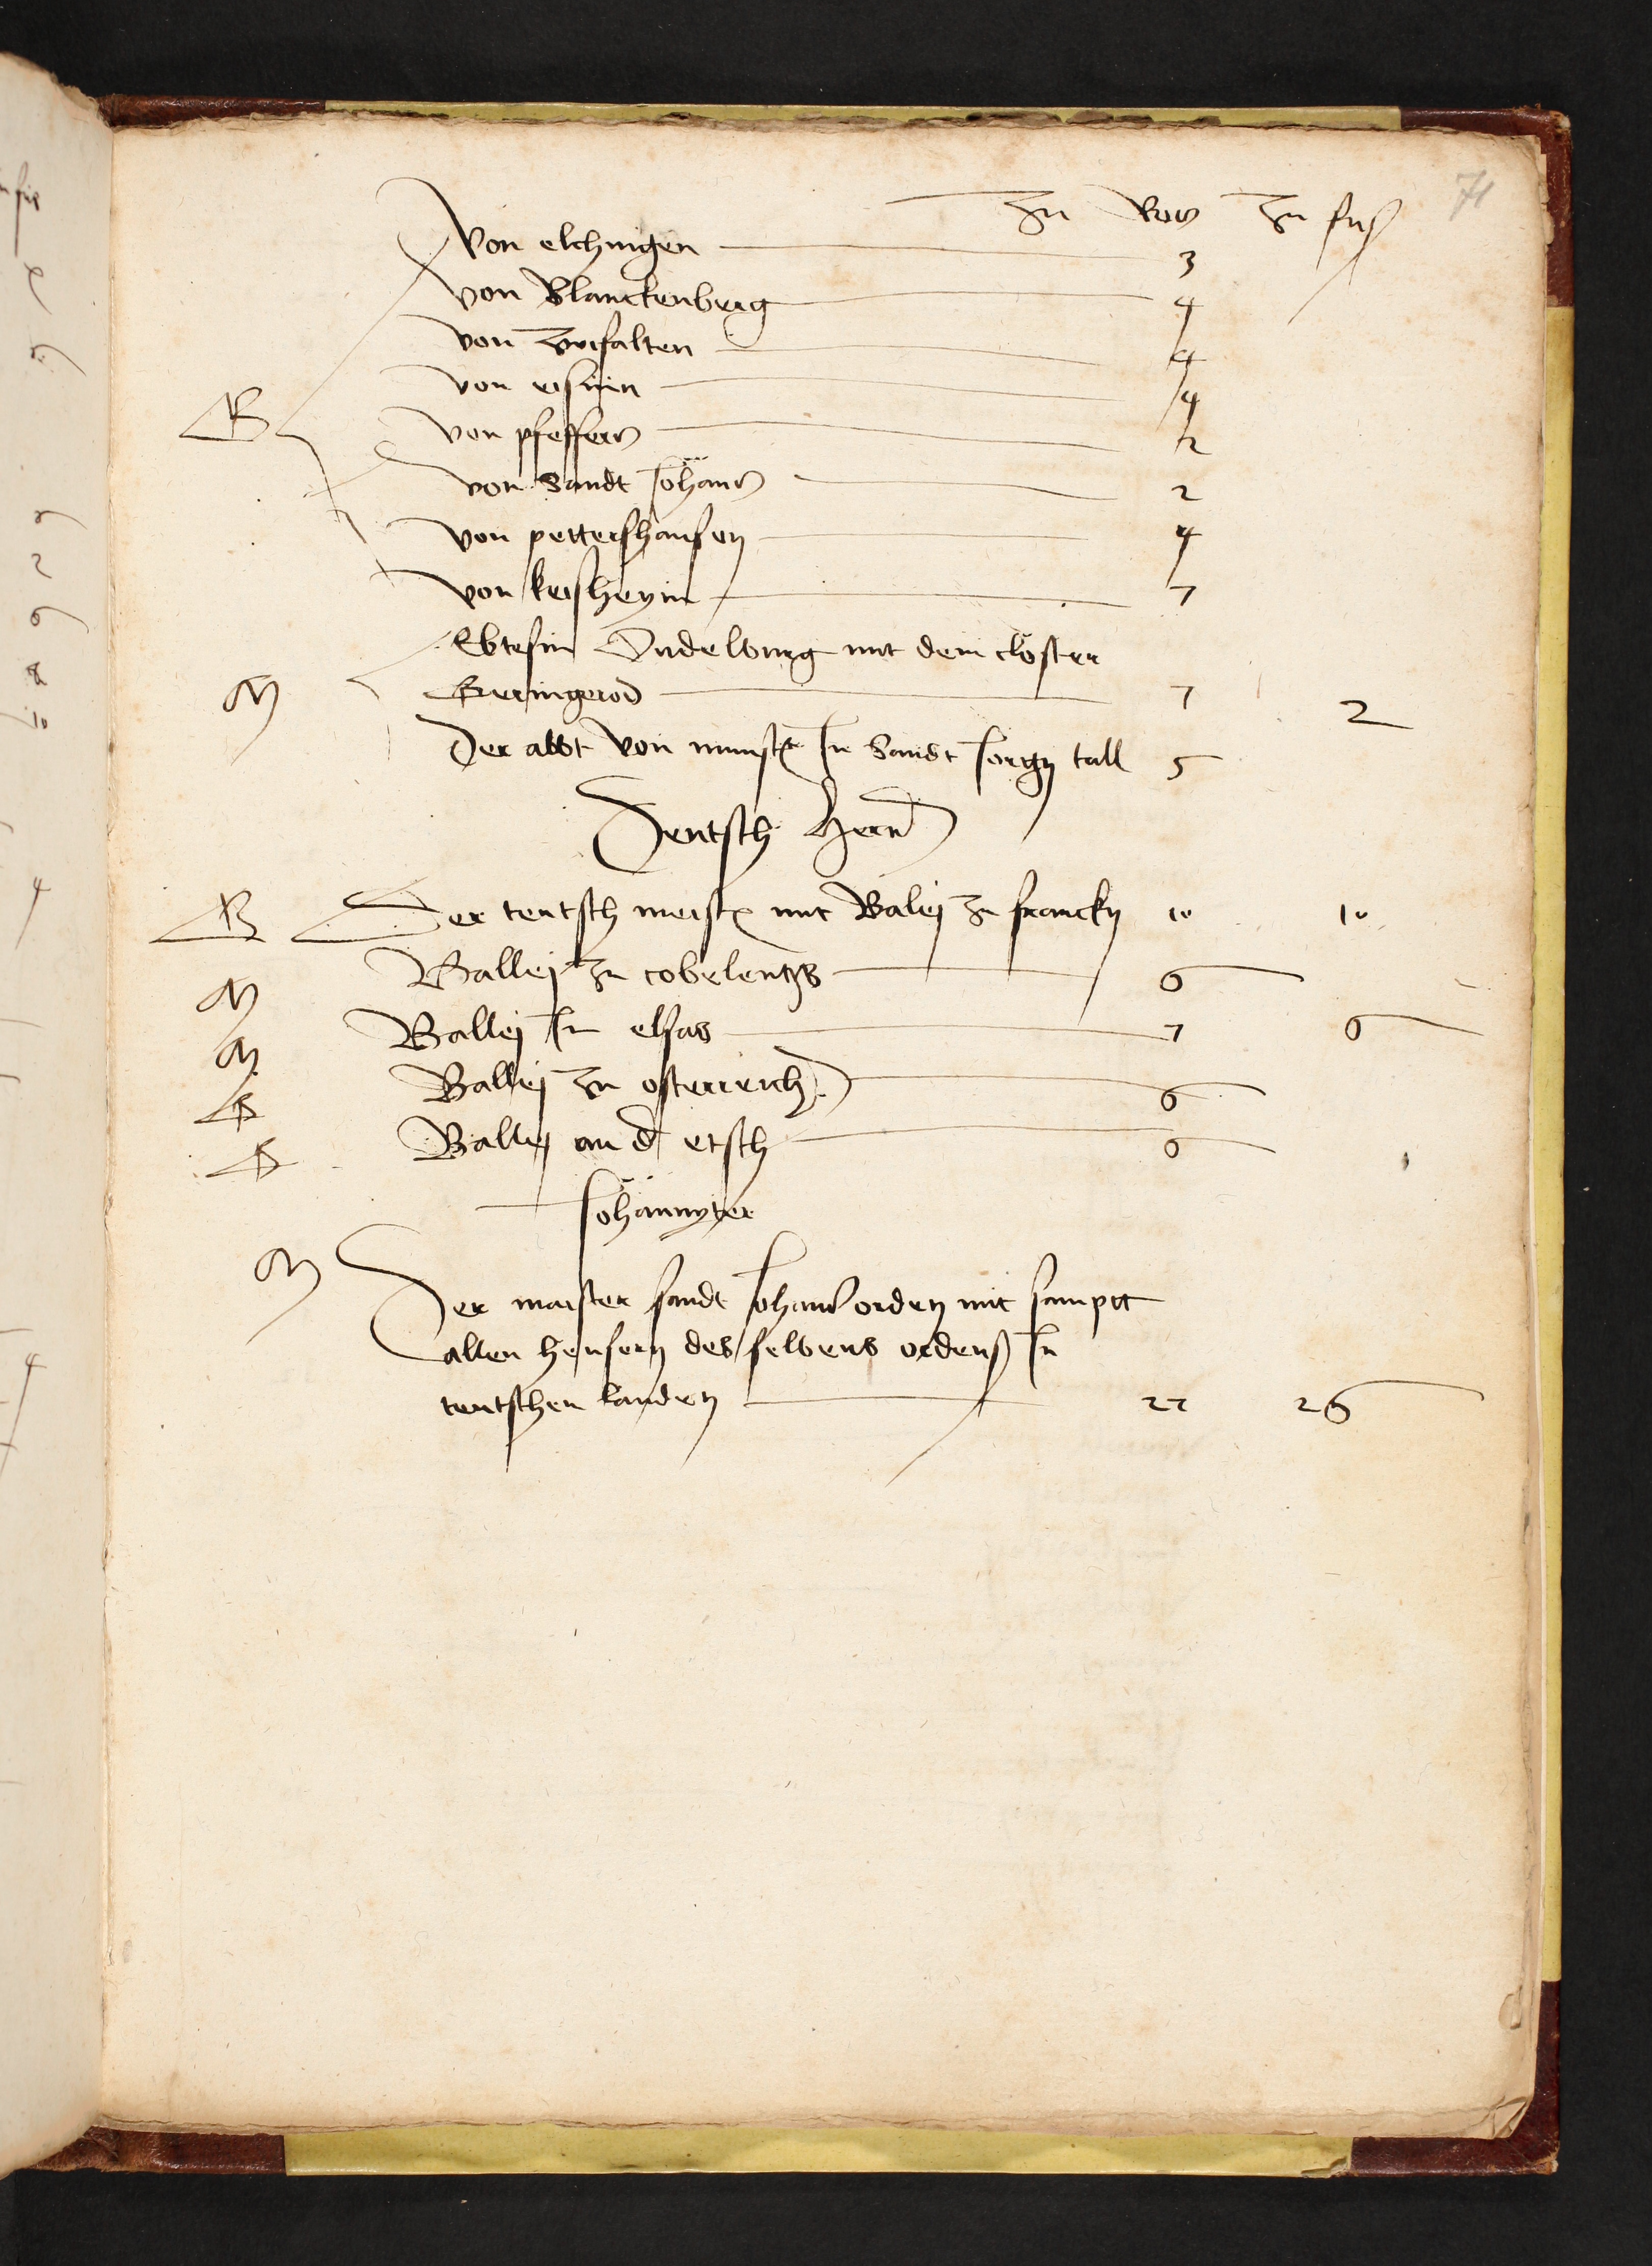 71
Zu Ros Zu fuß
Von elchingen 3
von Blanckenberg 4
von Zwifalten 4
von eisnin 4
R von pfeffers 2
von Sandt Johans 2
von pettershausen 4
von keisheym 7
Ebtesin Qudelburg mit dem closter
M Geringerod 7 2
Der abbt von munster In Sandt Jorgen tall 5
Teutsch Hern
R Der teutsch meister mit Baley zu francken 10 10
M Balley zu cobelentzs 6
M Balley In elsas 7 6
R Balley zu osterreich 6
R Balley an der etsch 6
Johannyter
M Der maister sandt Johans orden mit sampt
allen heusern desselbens ordens In
teutschen landen 22 26